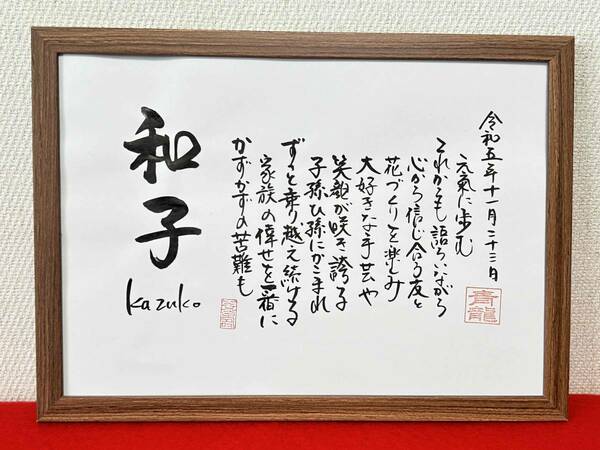 和子
kazuko
かずかずの苦難も
家族の倖せを一番に
ずっと乗り越え続ける
子孫ひ孫にかこまれ
笑顔が咲き誇る
大好きな手芸や
花づくりを楽しみ
心から信じ合う友と
これからも語らいながら
元気に歩む
令和五年十一月二十三日
青龍